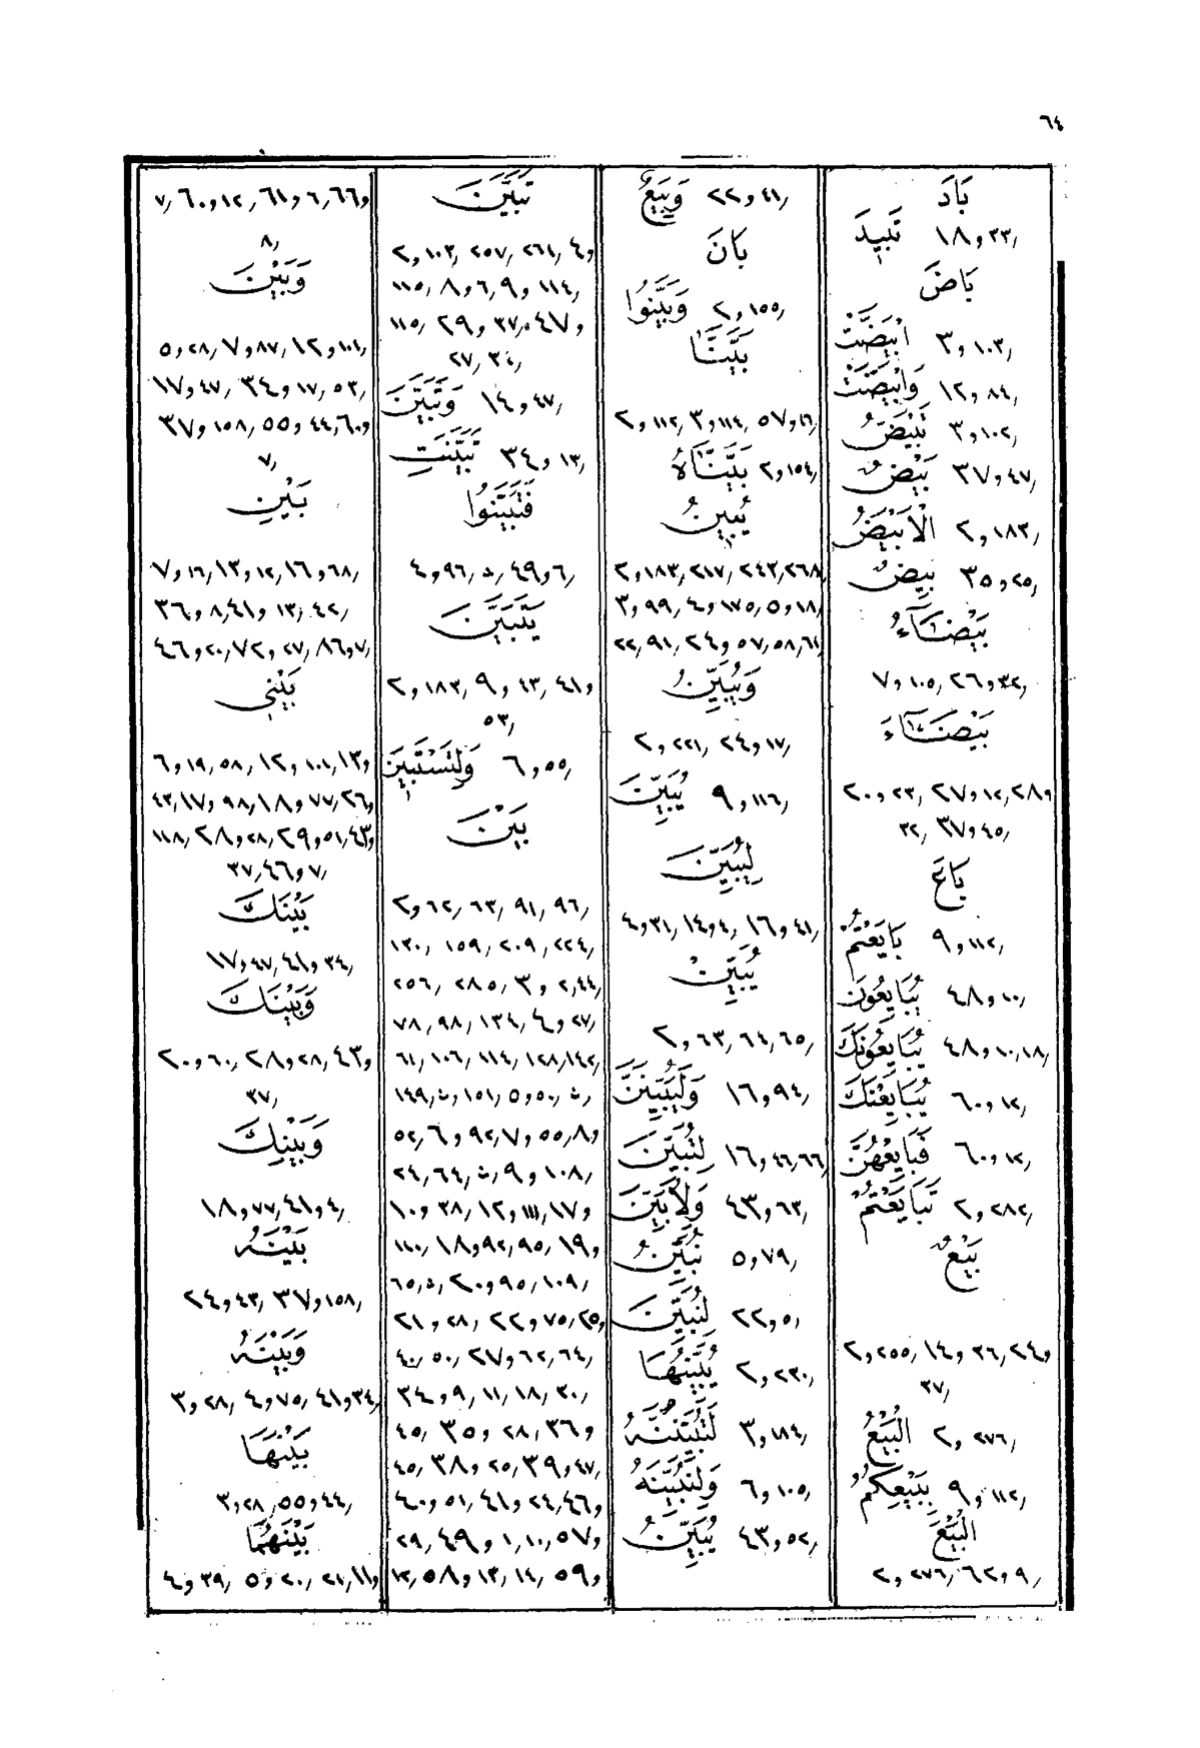 ٦٤
بَادَ
تَبِيدَ ١٨و٣٣٫
بَاضَ
ابْيَضَّتْ ٣و١٠٣٫
وَابْيَضَّتْ ١٢و٨٤٫
تَبْيَضُّ ٣و١٠٢٫
بَيْضٌ ٣٧و٤٧٫
الْأَبْيَضُ ٢و١٨٣٫
بِيضٌ ٣٥و٢٥٫
بَيْضَآءُ
٧و١٠٥٫ ٢٦و٣٢٫
بَيْضَآءَ
٢٠و٢٣٫ ٢٧و١٢٫ ٢٨و
٣٢٫ ٣٧و٤٥٫
بَاعَ
بَايَعْتُمْ ٩و١١٢٫
يُبَايِعُونَ ٤٨و١٠٫
يُبَايِعُونَكَ ٤٨و١٠٫١٨٫
يُبَايِعْنَكَ ٦٠و١٢٫
فَبَايِعْهُنَّ ٦٠و١٢٫
تَبَايَعْتُمْ ٢و٢٨٢٫
بَيْعٌ
٢و٢٥٥٫ ١٤و٣٦٫ ٢٤و
٣٧٫
الْبَيْعُ ٢و٢٧٦٫
بِبَيْعِكُمْ ٩و١١٢٫
الْبَيْعَ
٢و٢٧٦٫ ٦٢و٩٫
وَبِيَعٌ ٢٢و٤١٫
بَانَ
وَبَيَّنُوا ٢و١٥٥٫
بَيَّنَّا
٢و١١٢٫ ٣و١١٤٫ ٥٧و١٦٫
بَيَّنَّاهُ ٢و١٥٤٫
يُبَيِّنُ
٢و١٨٣٫ ٢١٧٫ ٢٤٣٫٢٦٨٫
٣و٩٩٫ ٤و١٧٥٫ ٥و١٨٫
٢٢٫٩١٫ ٢٤و٥٧٫ ٥٨٫ ٦١٫
وَيُبَيِّنُ
٢و٢٢١٫ ٢٤و١٧٫
يُبَيِّنَ ٩و١١٦٫
لِيُبَيِّنَ
٤و٣١٫ ١٤و٤٫ ١٦و٤١٫
يُبَيِّنْ
٢و٦٣٫ ٦٤٫ ٦٥٫
وَلَيُبَيِّنَنَّ ١٦و٩٤٫
لِتُبَيِّنَ ١٦و٤٦٫٦٦٫
وَلِأُبَيِّنَ ٤٣و٦٣٫
نُبَيِّنُ ٥و٧٩٫
لِنُبَيِّنَ ٢٢و٥٫
يُبَيِّنُهَا ٢و٢٣٠٫
لَتُبَيِّنُنَّهُ ٣و١٨٤٫
وَلِنُبَيِّنَهُ ٦و١٠٥٫
يُبِينُ ٤٣و٥٢٫
تَبَيَّنَ
٢و١٠٣٫ ٢٥٧٫ ٢٦١٫ ٤و
١١٥٫ ٨و٦٫ ٩و١١٤٫
١١٥٫ ٢٩و٣٧٫ ٤٧و
٢٧٫ ٣٤٫
وَتَبَيَّنَ ١٤و٤٧٫
تَبَيَّنَتِ ٣٤و١٣٫
فَتَبَيَّنُوا
٤و٩٦٫ ٤٩و٦٫
يَتَبَيَّنَ
٢و١٨٣٫ ٩و٤٣٫ ٤١و
٥٣٫
وَلِتَسْتَبِينَ ٦و٥٥٫
بَيْنَ
٢و٦٢٫ ٦٣٫ ٩١٫ ٩٦٫
١٣٠٫ ١٥٩٫ ٢٠٩٫ ٢٢٤٫
٢٥٦٫ ٢٨٥٫ ٣و٢٫٤٤٫
٧٨٫ ٩٨٫ ١٣٤٫ ٤و٢٧٫
٦١٫ ١٠٦٫ ١١٤٫ ١٢٨٫١٤٢٫
١٤٩٫ ١٥١٫ ٥و٥٠٫
٥٢٫ ٦و٩٢٫ ٧و٥٥٫ ٨و
٢٤٫ ٦٤٫ ٩و١٠٨٫
١٠و٣٨٫ ١٢و١١١٫ ١٧و
١١٠٫ ١٨و٩٢٫ ٩٥٫ ١٩و
٦٥٫ ٢٠و٩٥٫ ١٠٩٫
٢١و٢٨٫ ٢٢و٧٥٫ ٢٥و
٤٠٫ ٥٠٫ ٢٧و٦٢٫ ٦٤٫
٣٤و٩٫ ١١٫ ١٨٫ ٣٠٫
٤٥٫ ٣٥و٢٨٫ ٣٦و
٤٥٫ ٣٨و٢٥٫ ٣٩و٤٧٫
٤٠و٥١٫ ٤١و٢٤٫ ٤٦و
٢٩٫ ٤٩و١٫ ١٠٫ ٥٧و
١٢٫ ٥٨و١٣٫ ١٤٫ ٥٩و
٧٫ ٦٠و١٢٫ ٦١و٦٫ ٦٦و
٨٫
وَبَيْنَ
٥و٢٨٫ ٧و٨٧٫ ١٢و١٠١٫
١٧و٤٧٫ ٣٤و١٧٫ ٥٣٫
٣٧و١٥٨٫ ٥٥و٤٤٫ ٦٠و
٧٫
بَيْنِ
٧و١٦٫ ١٣و١٢٫ ١٦و٦٨٫
٣٦و٨٫ ٤١و١٣٫ ٤٢٫
٤٦و٢٠٫ ٧٢و٢٧٫ ٨٦و٧٫
بَيْنِي
٦و١٩٫ ٥٨٫ ١٢و١٠١٫ ١٣و
٤٣٫ ١٧و٩٨٫ ١٨و٧٧٫ ٢٦و
١١٨٫ ٢٨و٢٨٫ ٢٩و٥١٫ ٤٣و
٣٧٫ ٤٦و٧٫
بَيْنَكَ
١٧و٤٧٫ ٤١و٣٤٫
وَبَيْنَكَ
٢٠و٦٠٫ ٢٨و٢٨٫ ٤٣و
٣٧٫
وَبَيْنِكَ
١٨و٧٧٫ ٤١و٤٫
بَيْنَهُ
٢٤و٤٣٫ ٣٧و١٥٨٫
وَبَيْنَهُ
٣و٢٨٫ ٤و٧٥٫ ٤١و٣٤٫
بَيْنَهَا
٣و٢٨٫ ٥٥و٤٤٫
بَيْنَهُمَا
٤و٣٩٫ ٥و٢٠٫ ٢١٫ ١١و